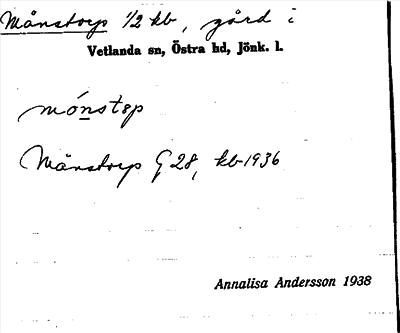 Månstorp 1/2 kb, gård i
Vetlanda sn, Östra hd, Jönk. l.
mónstɐp
Månstorp G 28, kb 1936
Annalisa Andersson 1938